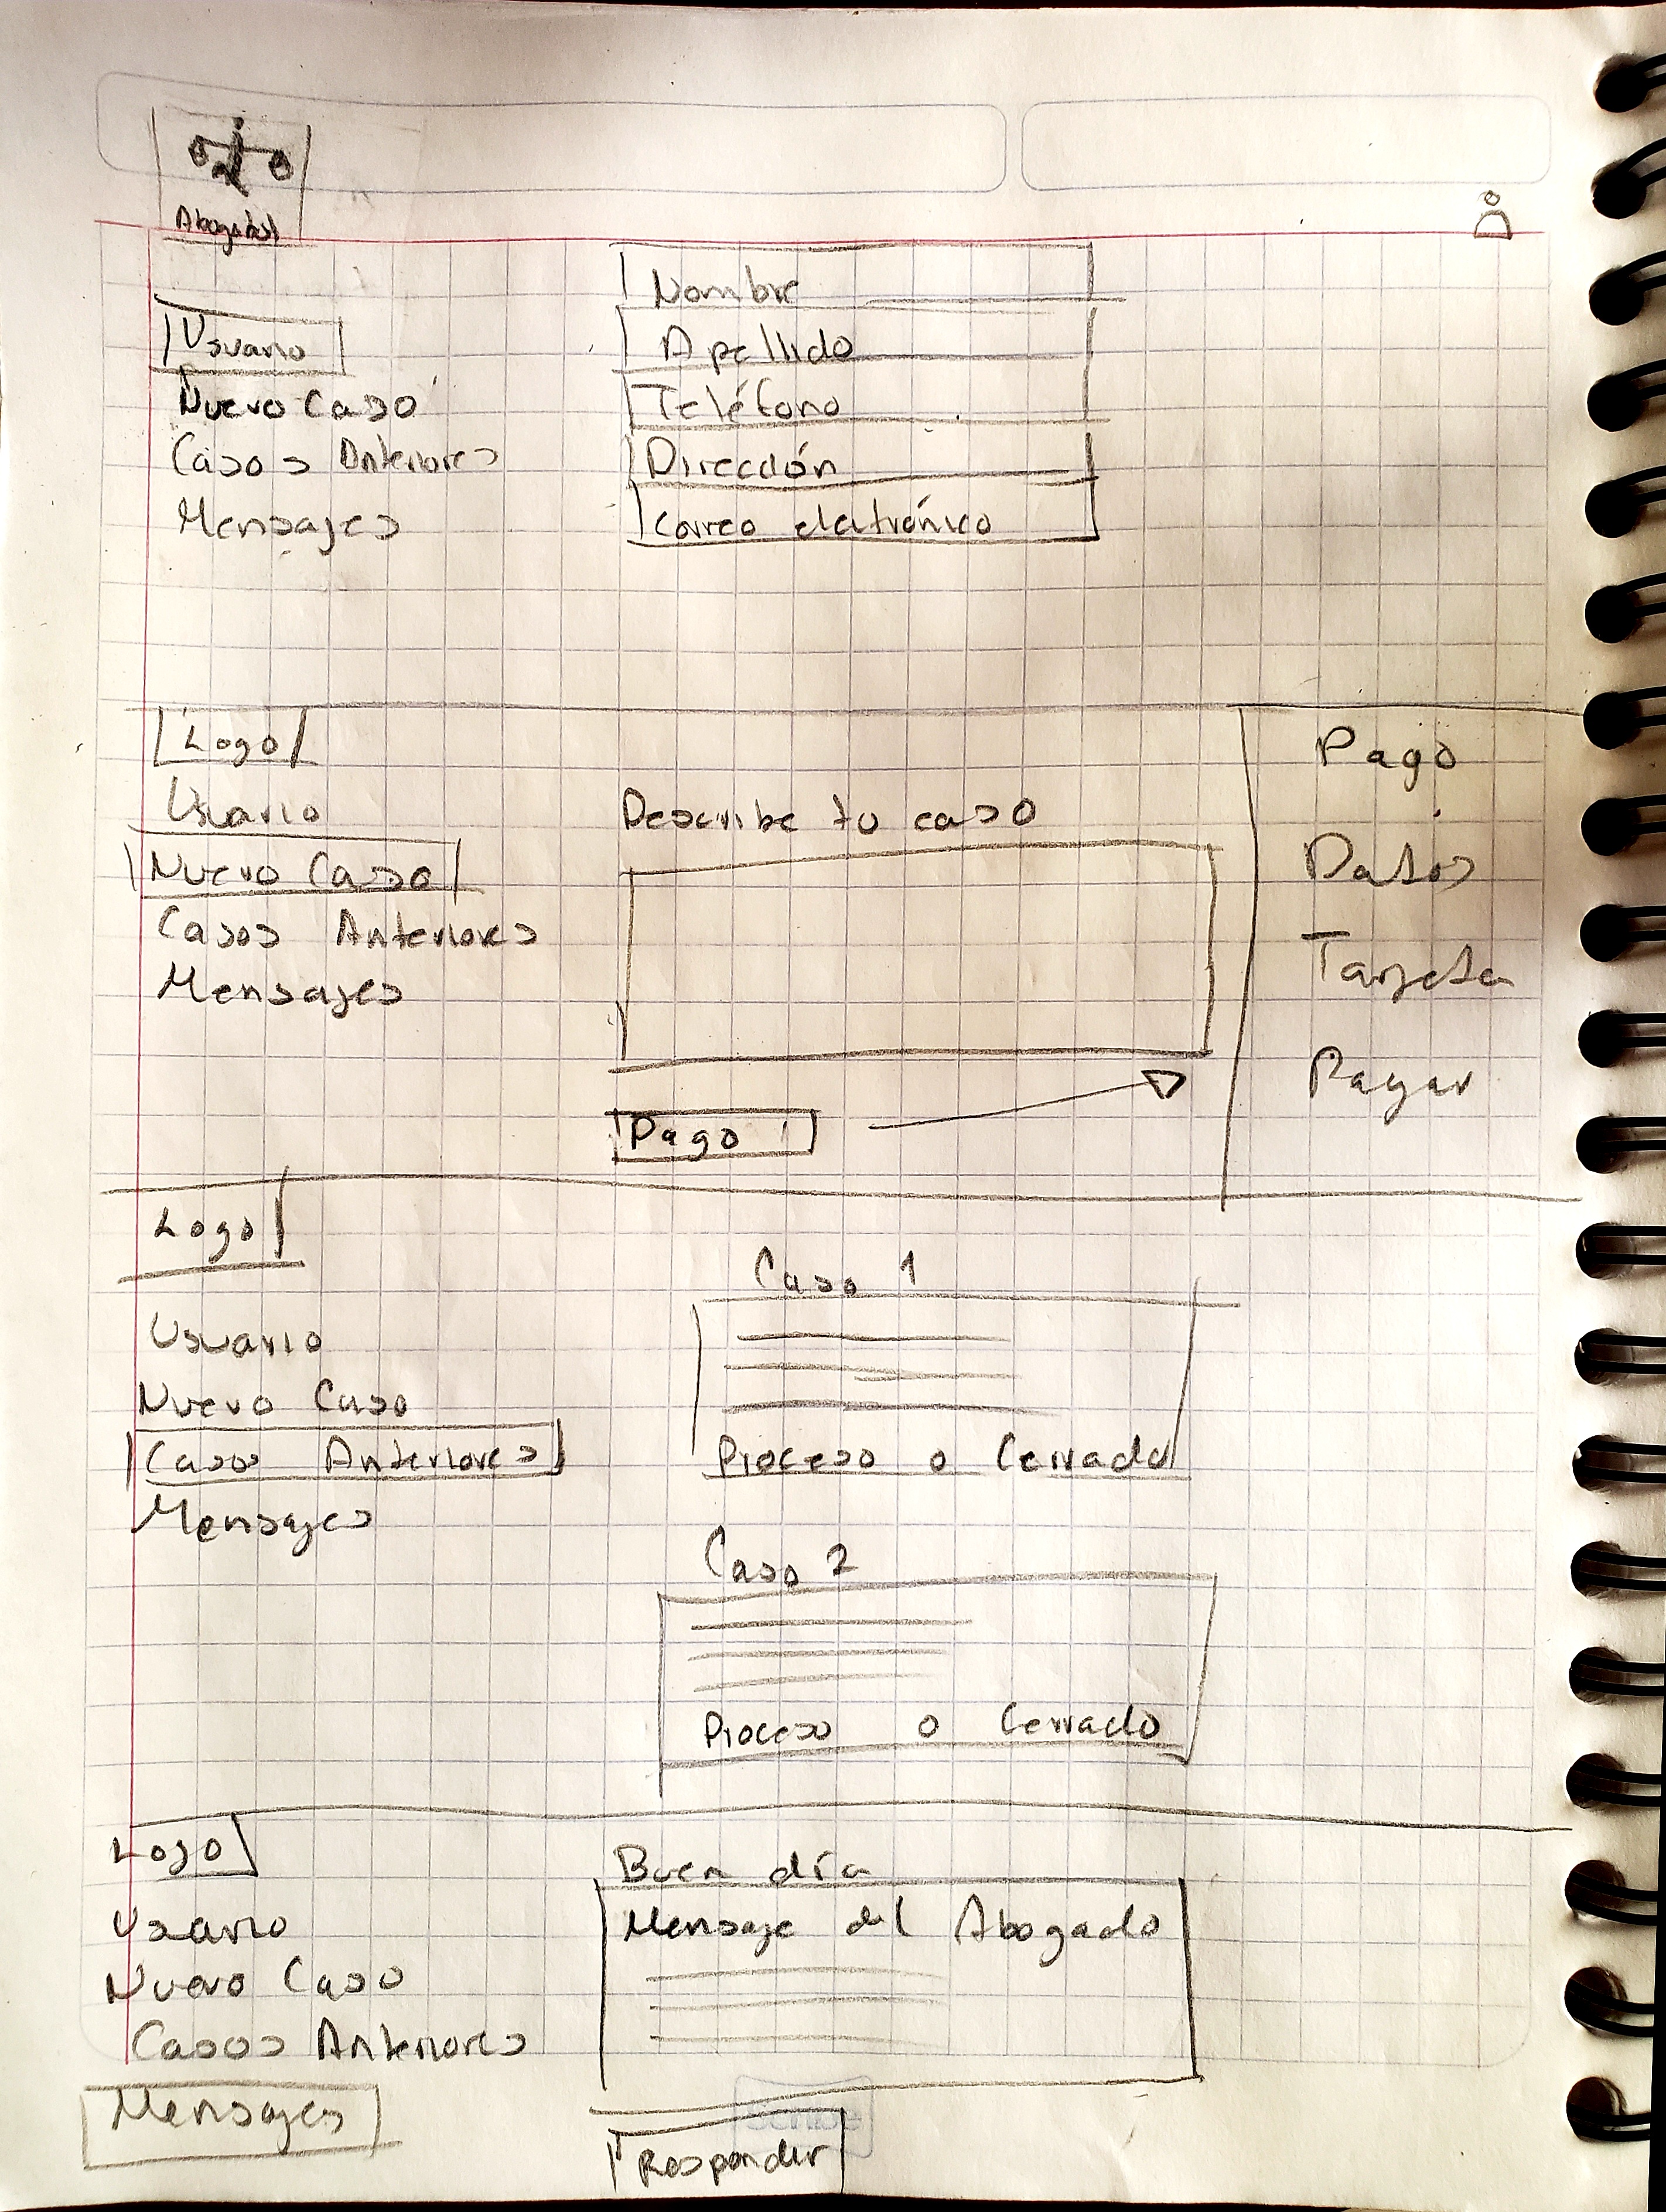 Abogados
Usuario
Nuevo Caso
Casos Anteriores
Mensajes
Nombre
Apellido
Teléfono
Dirección
Correo electrónico
Logo
Usuario
Nuevo Caso
Casos Anteriores
Mensajes
Describe tu caso
Pago
Pago
Datos
Tarjeta
Pagar
Logo
Usuario
Nuevo Caso
Casos Anteriores
Mensajes
Caso 1
Proceso o Cerrado
Caso 2
Proceso o Cerrado
Logo
Usuario
Nuevo Caso
Casos Anteriores
Mensajes
Buen día
Mensaje del Abogado
Responder
Scribe